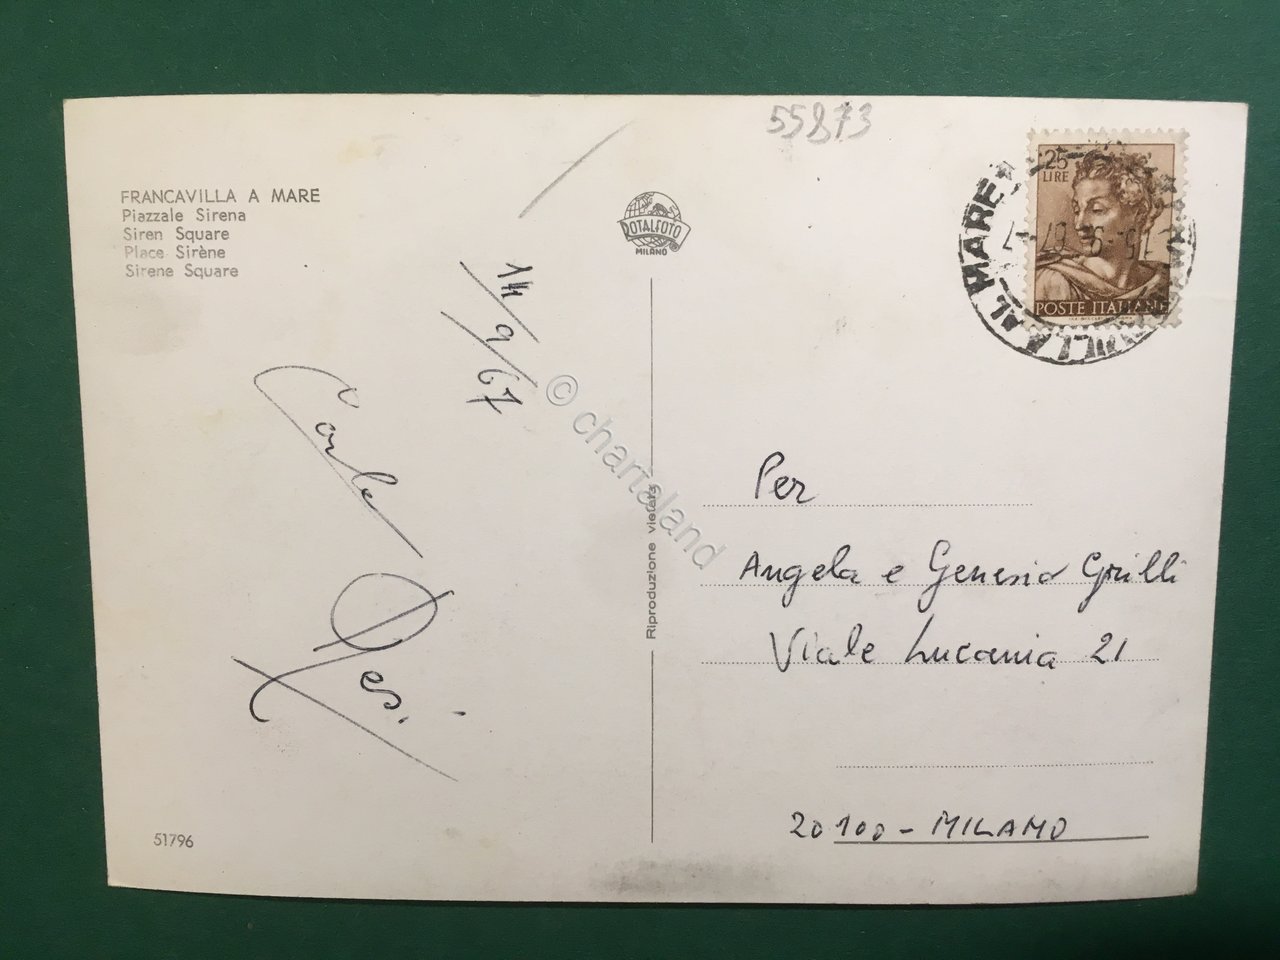 55873
FRANCAVILLA A MARE
Piazzale Sirena
Siren Square
Place Sirène
Sirene Square
ROTALFOTO
MILANO
25
LIRE
POSTE ITALIANE
AL MARE
14/9/67
© chartaland
Riproduzione vietata
Per
Angela e Genesio Grilli
Viale Lucania 21
20100 - MILANO
51796